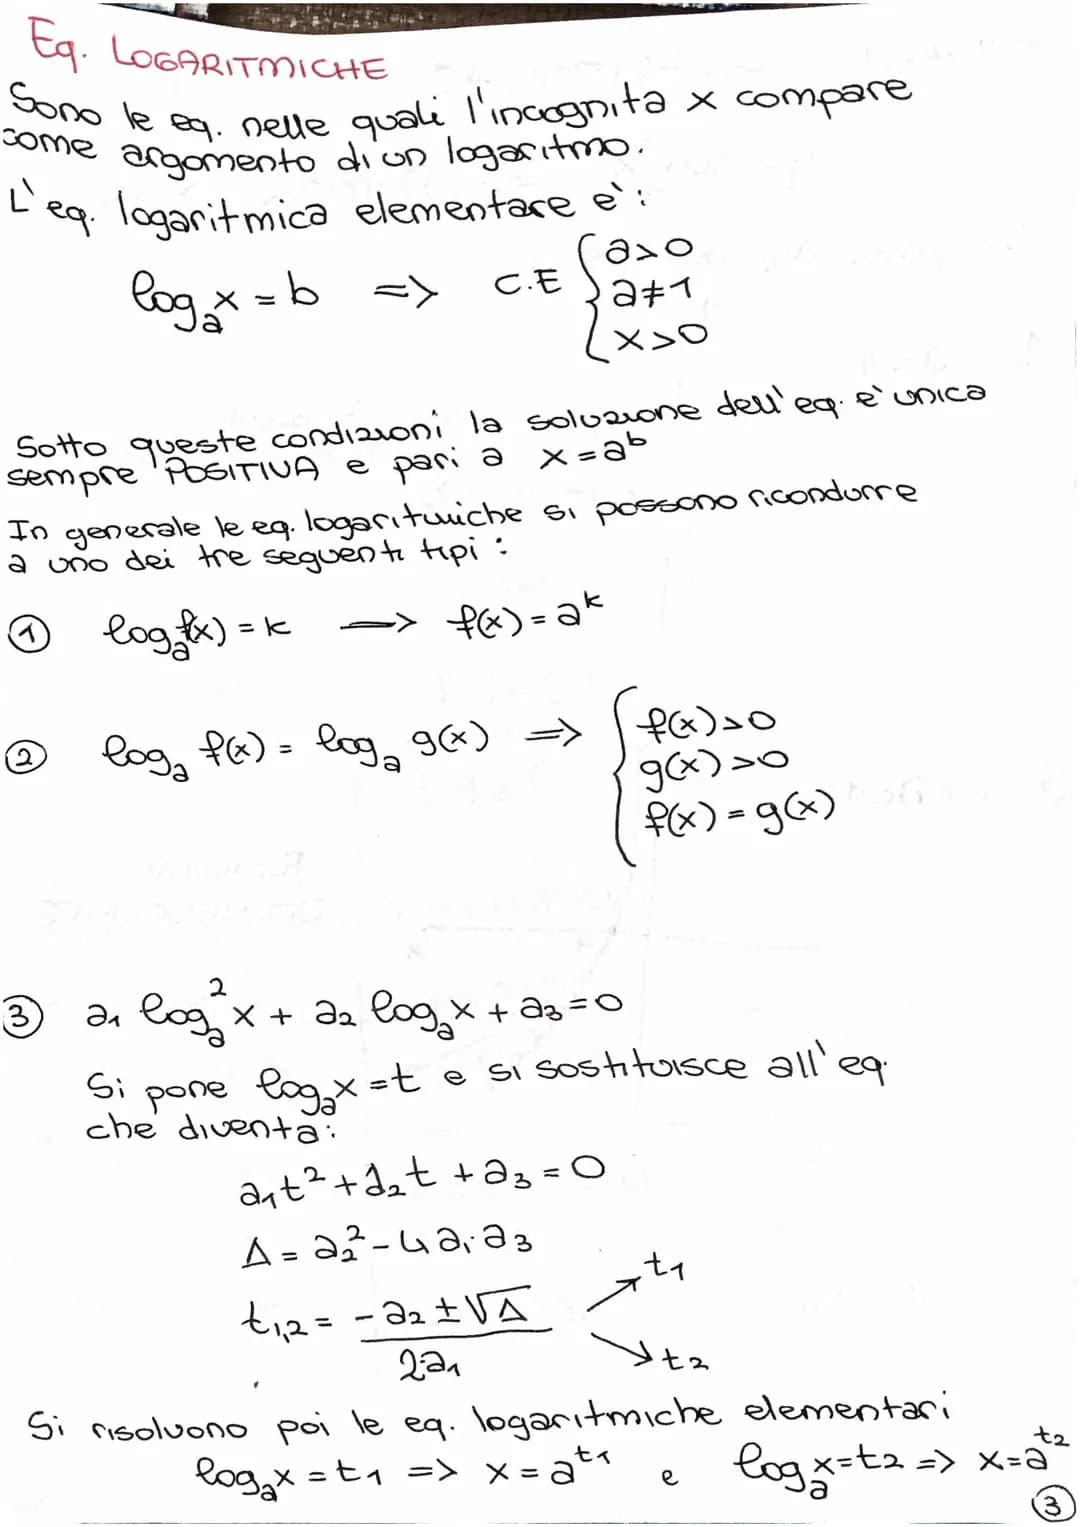 Eq. LOGARITMICHE
Sono le eq. nelle quali l'incognita x compare
come argomento di un logaritmo.
L'eq. logaritmica elementare è:
logₐx = b => C.E { a>0
a≠1
x>0
Sotto queste condizioni la soluzione dell'eq. è unica
sempre POSITIVA e pari a x = a^b
In generale le eq. logaritmiche si possono ricondurre
a uno dei tre seguenti tipi:
① logₐf(x) = k —> f(x) = a^k
② logₐ f(x) = logₐ g(x) => { f(x)>0
g(x)>0
f(x) = g(x)
③ a₁ logₐ²x + a₂ logₐx + a₃ = 0
Si pone logₐx = t e si sostituisce all'eq.
che diventa:
a₁t² + a₂t + a₃ = 0
Δ = a₂² - 4a₁·a₃
t₁,₂ = (-a₂ ± √Δ) / 2·a₁ ↗ t₁
↘ t₂
Si risolvono poi le eq. logaritmiche elementari
logₐx = t₁ => x = a^t₁ e logₐx = t₂ => x = a^t₂
③